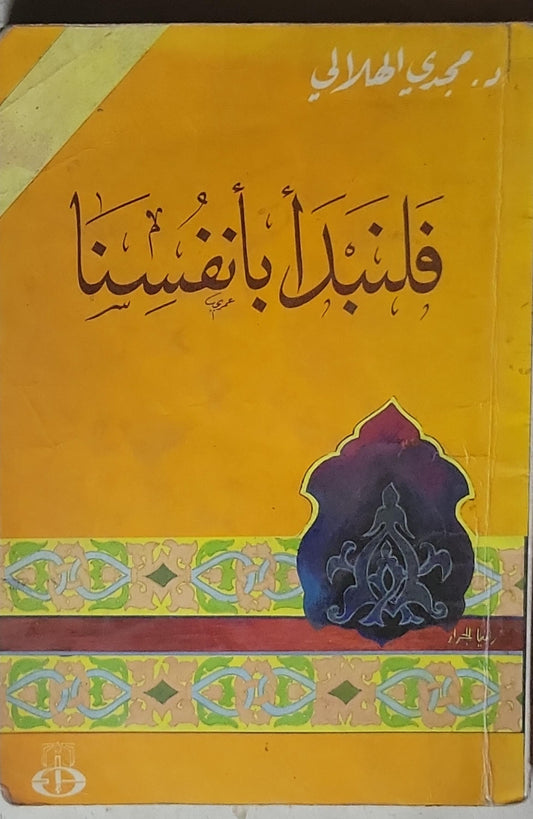 د. مجدي الهلالي
فَلنَبْدَأ بأنفُسِنَا